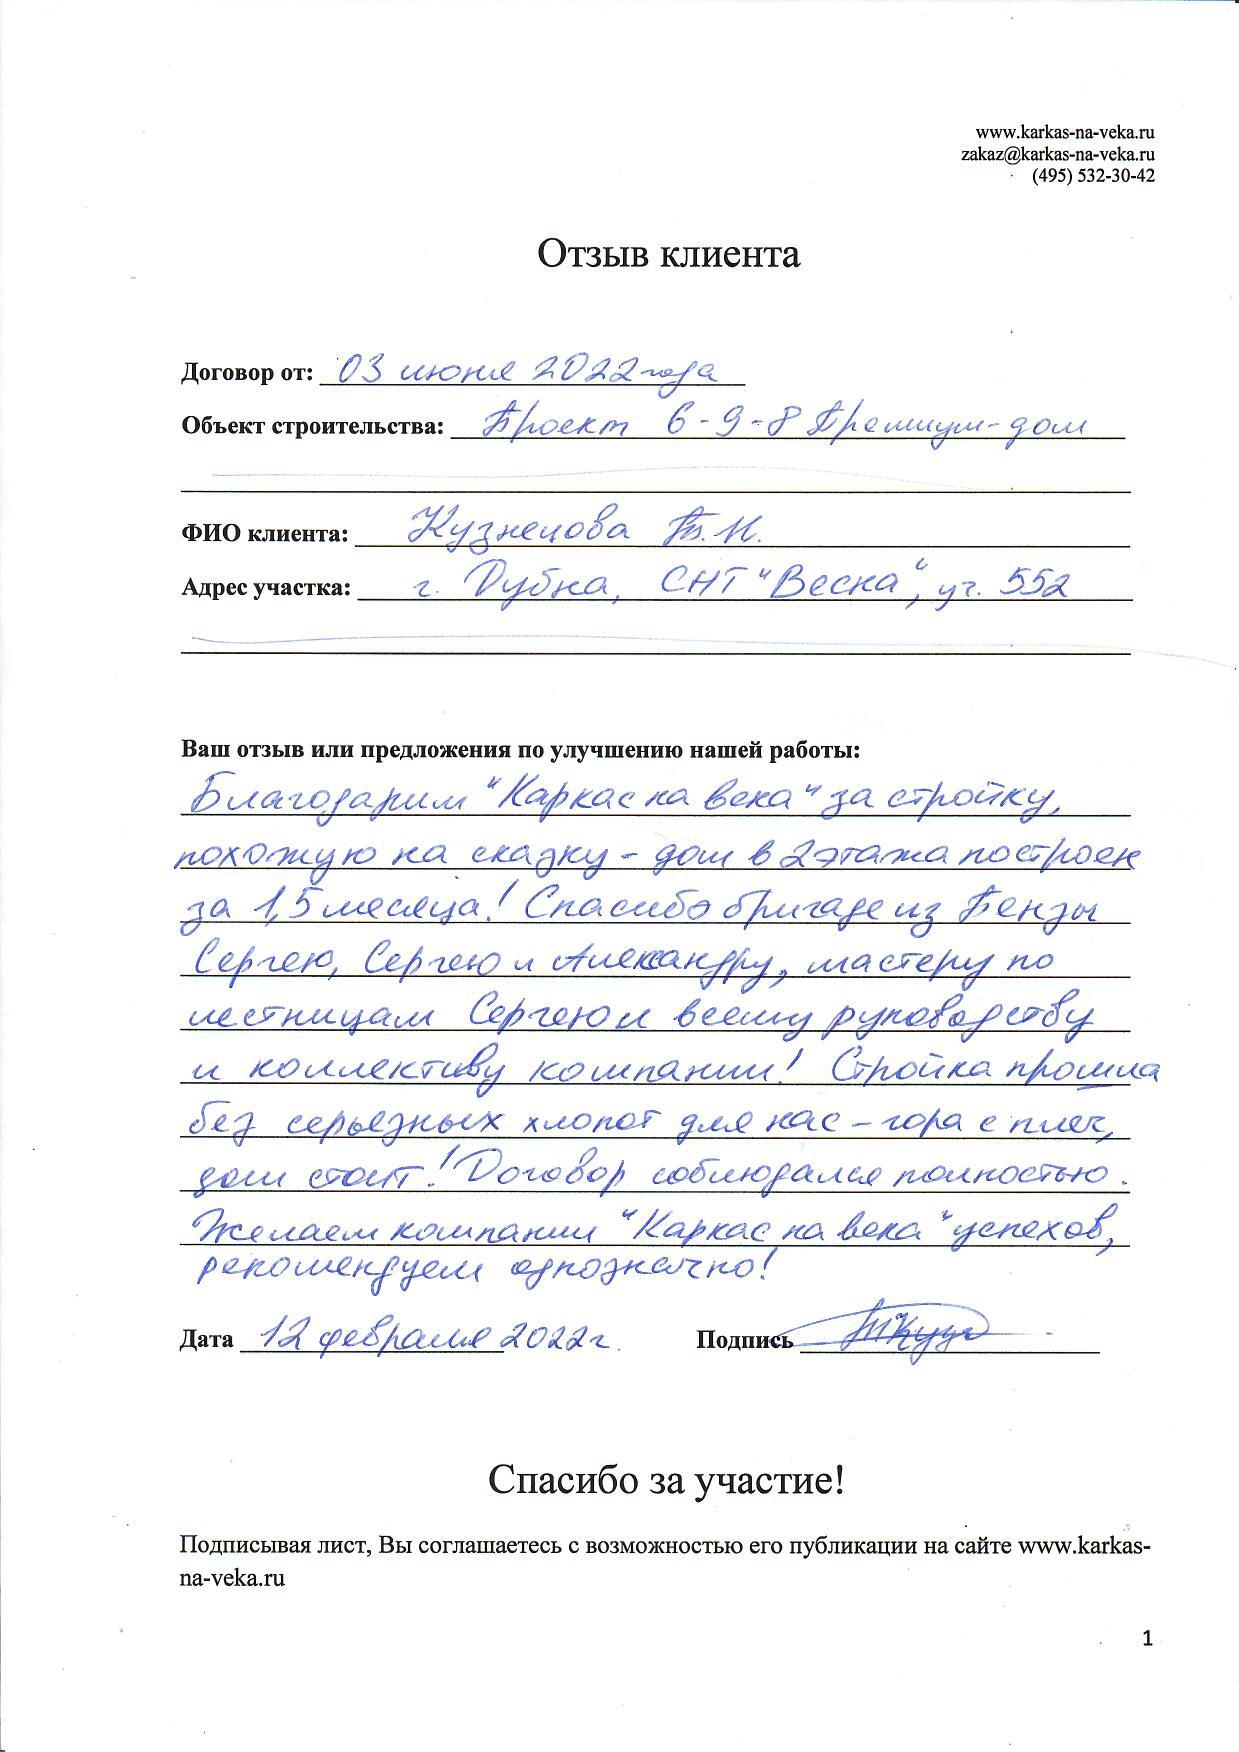 www.karkas-na-veka.ru
zakaz@karkas-na-veka.ru
(495) 532-30-42
Отзыв клиента
Договор от: 03 июня 2022 года
Объект строительства: Проект 6-9-8 Премиум-дом
ФИО клиента: Кузнецова Т.Н.
Адрес участка: г. Дубна, СНТ "Весна", уч. 552
Ваш отзыв или предложения по улучшению нашей работы:
Благодарим "Каркас на века" за стройку,
похожую на сказку - дом в 2 этажа построен
за 1,5 месяца! Спасибо бригаде из Пензы
Сергею, Сергею и Александру, мастеру по
лестницам Сергею и всему руководству
и коллективу компании! Стройка прошла
без серьезных хлопот для нас - гора с плеч,
дом стоит! Договор соблюдался полностью.
Желаем компании "Каркас на века" успехов,
рекомендуем однозначно!
Дата 12 февраля 2022 г. Подпись
Спасибо за участие!
Подписывая лист, Вы соглашаетесь с возможностью его публикации на сайте www.karkas-
na-veka.ru
1